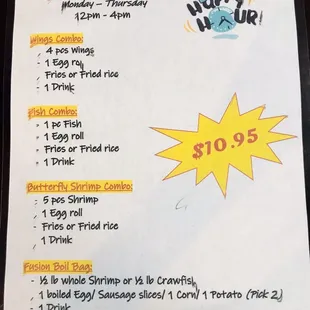 Monday - Thursday
12pm - 4pm
HAPPY
HOUR!
Wings Combo:
- 4 pcs Wings
- 1 Egg roll
Fries or Fried rice
- 1 Drink
Fish Combo:
- 1 pc Fish
- 1 Egg roll
- Fries or Fried rice
- 1 Drink
$10.95
Butterfly Shrimp Combo:
- 5 pcs Shrimp
- 1 Egg roll
- Fries or Fried rice
- 1 Drink
Fusion Boil Bag:
- ½ lb whole Shrimp or ½ lb Crawfish
- 1 boiled Egg/ Sausage slices/ 1 Corn/ 1 Potato (Pick 2)
- 1 Drink